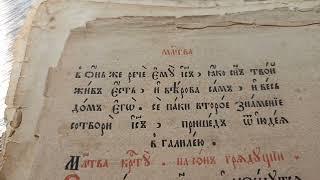 мл҃тва
в о́нь же рече є҆мꙋ̀ і҆с҃ъ, ꙗ҆́кѡ сн҃ъ твой
живъ є҆́сть, и҆ вѣ́рова самъ, и҆ весь
домъ є҆гѡ̀. се па́ки второе знамение
сотворѝ і҆с҃ъ, пришедъ ѿ і҆ꙋде́и
в галилею.
Мл҃тва крⷭ҇тꙋ. на сон грядꙋщи